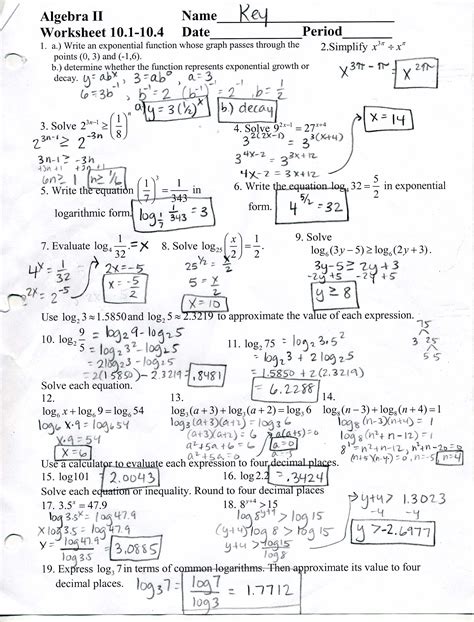 Algebra II Name Key
Worksheet 10.1-10.4 Date Period
1. a.) Write an exponential function whose graph passes through the points (0, 3) and (-1,6).
b.) determine whether the function represents exponential growth or decay.
y = abˣ, 3 = ab⁰, a = 3,
6 = 3b⁻¹ b⁻¹ = 2 (b⁻¹)⁻¹ = 2⁻¹, b = 1/2
a.) y = 3(1/2)ˣ b.) decay
2. Simplify x^(3π) ÷ x^π
x^(3π - π) = x^(2π)
3. Solve 2^(3n-1) ≥ (1/8)^n
2^(3n-1) ≥ 2^(-3n)
3n-1 ≥ -3n
+3n +1 +3n +1
6n ≥ 1 n ≥ 1/6
4. Solve 9^(2x-1) = 27^(x+4)
3^(2(2x-1)) = 3^(3(x+4))
3^(4x-2) = 3^(3x+12)
4x-2 = 3x+12
x = 14
5. Write the equation (1/7)³ = 1/343 in logarithmic form.
log_(1/7) 1/343 = 3
6. Write the equation log₄ 32 = 5/2 in exponential form.
4^(5/2) = 32
7. Evaluate log₄ 1/32. = x
4ˣ = 1/32
2^(2x) = 2⁻⁵
2x = -5
x = -5/2
8. Solve log₂₅ (x/2) = 1/2.
25^(1/2) = x/2
5 = x/2
x = 10
9. Solve
log₆(3y - 5) ≥ log₆(2y + 3).
3y-5 ≥ 2y+3
-2y +5 -2y +5
y ≥ 8
Use log₂ 3 ≈ 1.5850 and log₂ 5 ≈ 2.3219 to approximate the value of each expression.
10. log₂ 9/5 = log₂9 - log₂5
= log₂3² - log₂5
= 2log₂3 - log₂5
= 2(1.5850) - 2.3219 = .8481
11. log₂ 75 = log₂ 3·5²
= log₂3 + 2log₂5
= 1.5850 + 2(2.3219)
= 6.2288
75
3 25
5 5
Solve each equation.
12.
log₆ x + log₆ 9 = log₆ 54
log₆ x·9 = log₆54
x·9 = 54
x = 6
13.
log₃(a + 3) + log₃(a + 2) = log₃ 6
log₃(a+3)(a+2) = log₃6
(a+3)(a+2) = 6
a²+5a+6 = 6
a²+5a = 0
a(a+5) = 0
a = 0
14.
log₈(n - 3) + log₈(n + 4) = 1
log₈(n-3)(n+4) = 1
log₈(n²+n-12) = 1
8¹ = n²+n-12, n²+n-20 = 0
(n+5)(n-4) = 0, n = -5 n = 4
Use a calculator to evaluate each expression to four decimal places.
15. log101 = 2.0043
16. log2.2 = .3424
Solve each equation or inequality. Round to four decimal places
17. 3.5ˣ = 47.9
log 3.5ˣ = log 47.9
x log 3.5 = log 47.9
log 47.9
log 3.5
3.0885
18. 8^(y+4) > 15
log 8^(y+4) > log 15
(y+4) log 8 > log 15
y+4 > log15/log8
y+4 > 1.3023
-4 -4
y > -2.6977
19. Express log₃ 7 in terms of common logarithms. Then approximate its value to four decimal places.
log₃7 = log7/log3 = 1.7712